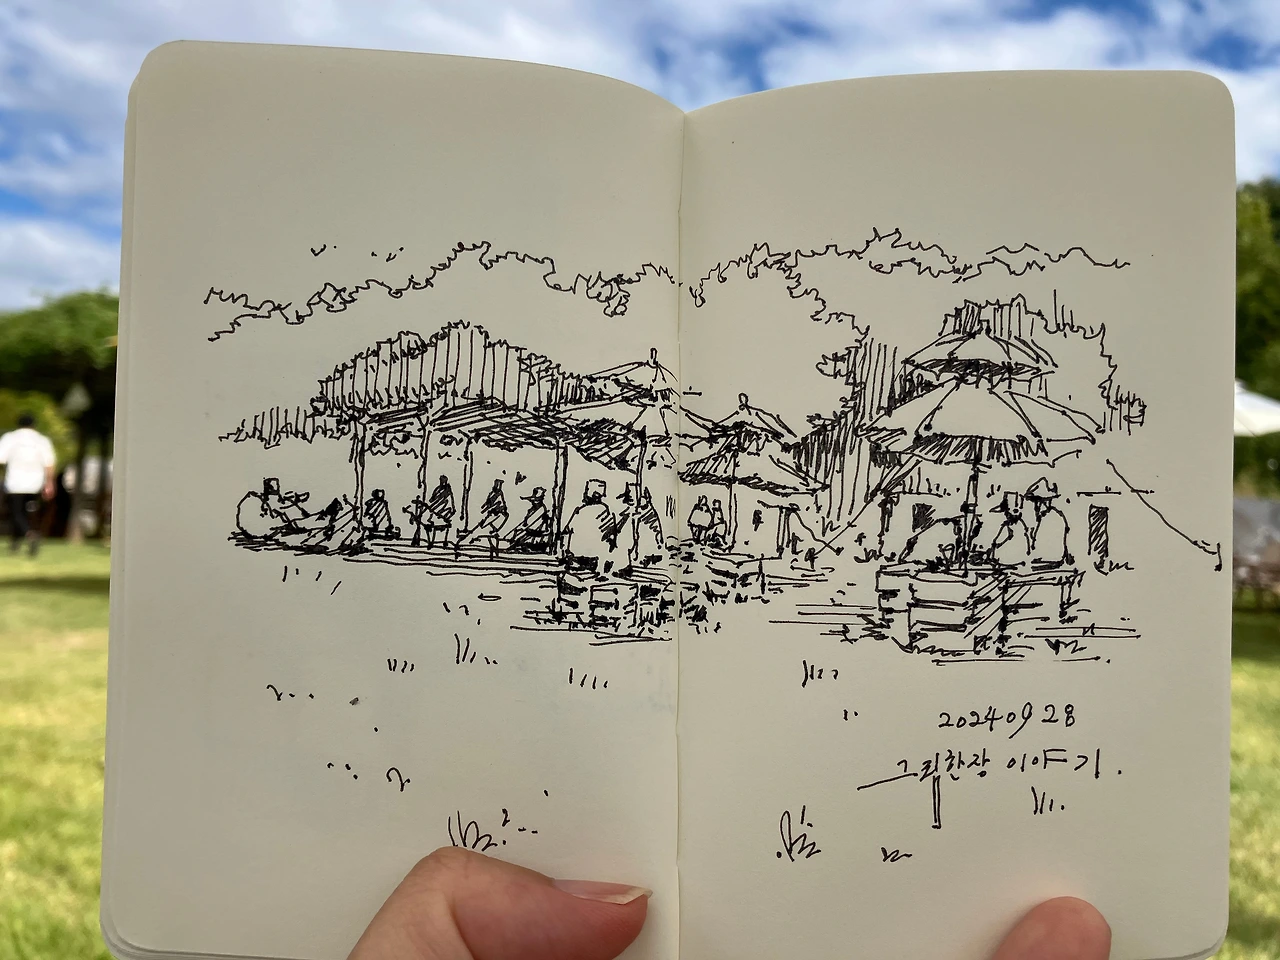 20240928
그림한장 이야기.